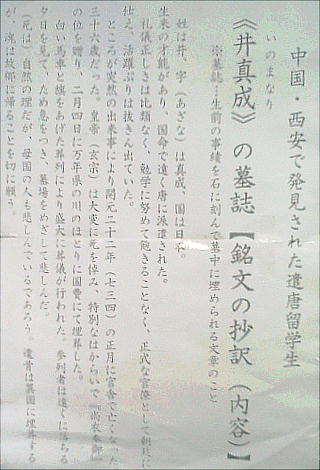 中国・西安で発見された遣唐留学生
いのまなり
《井真成》の墓誌【銘文の抄訳（内容）】
※墓誌…生前の事績を石に刻んで墓中に埋められる文章のこと
姓は井、字（あざな）は真成、国は日本。
生来の才能があり、国命で遠く唐に派遣された。
礼儀正しさは比類なく、勉学に努めて飽きることなく、正式な官僚として朝廷に
仕え、活躍ぶりは抜きん出ていた。
ところが突然の出来事により開元二十二年（七三四）の正月に官舎で亡くなった。
三十六歳だった。皇帝（玄宗）は大変に死を悼み、特別なはからいで『尚衣奉御』
の位を贈り、二月四日に万年県の川のほとりに国費にて埋葬した。
白い馬車と旗をあげた葬列により盛大に葬儀が行われた。参列者は遠くに落ちる
夕日を見て、ため息をつき、墓場をめざして悲しんだ。
（死は）自然の理だが、母国の人も悲しんでいるであろう。遺骨は異国に埋葬する
が、魂は故郷に帰ることを切に願う。